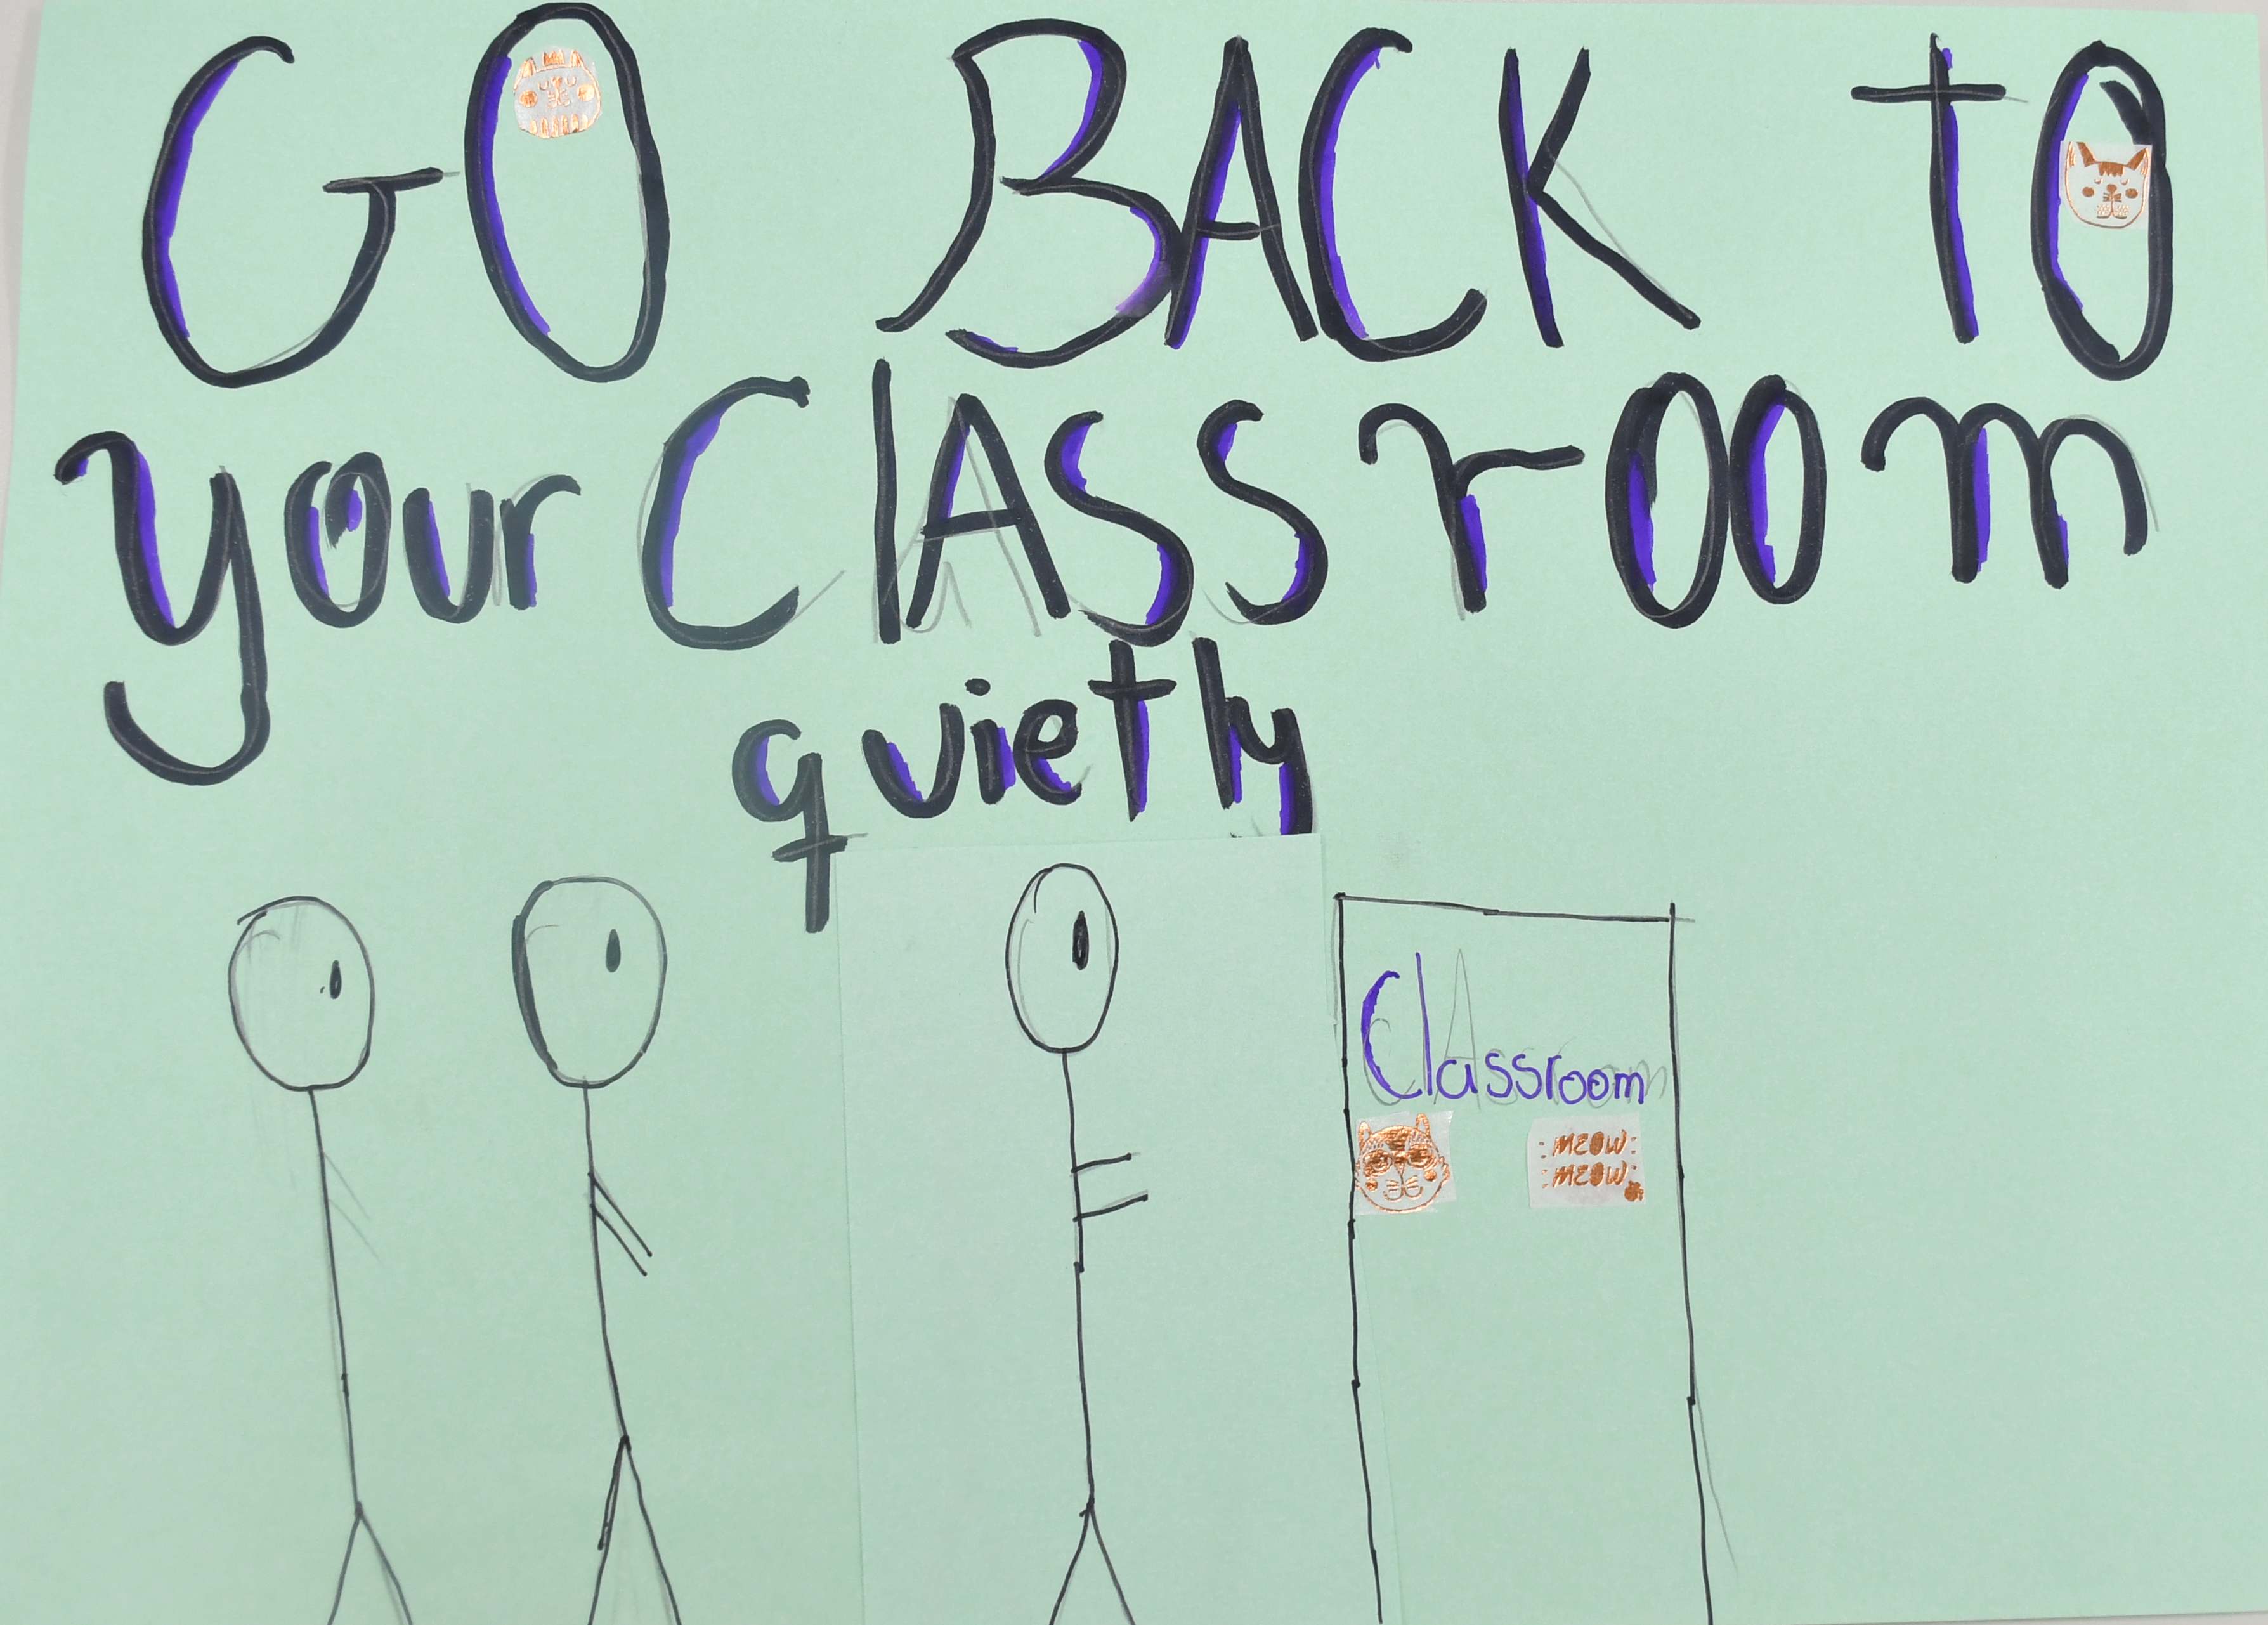 GO BACK TO
your ClASSrOOm
quietly
Classroom
MEOW
MEOW